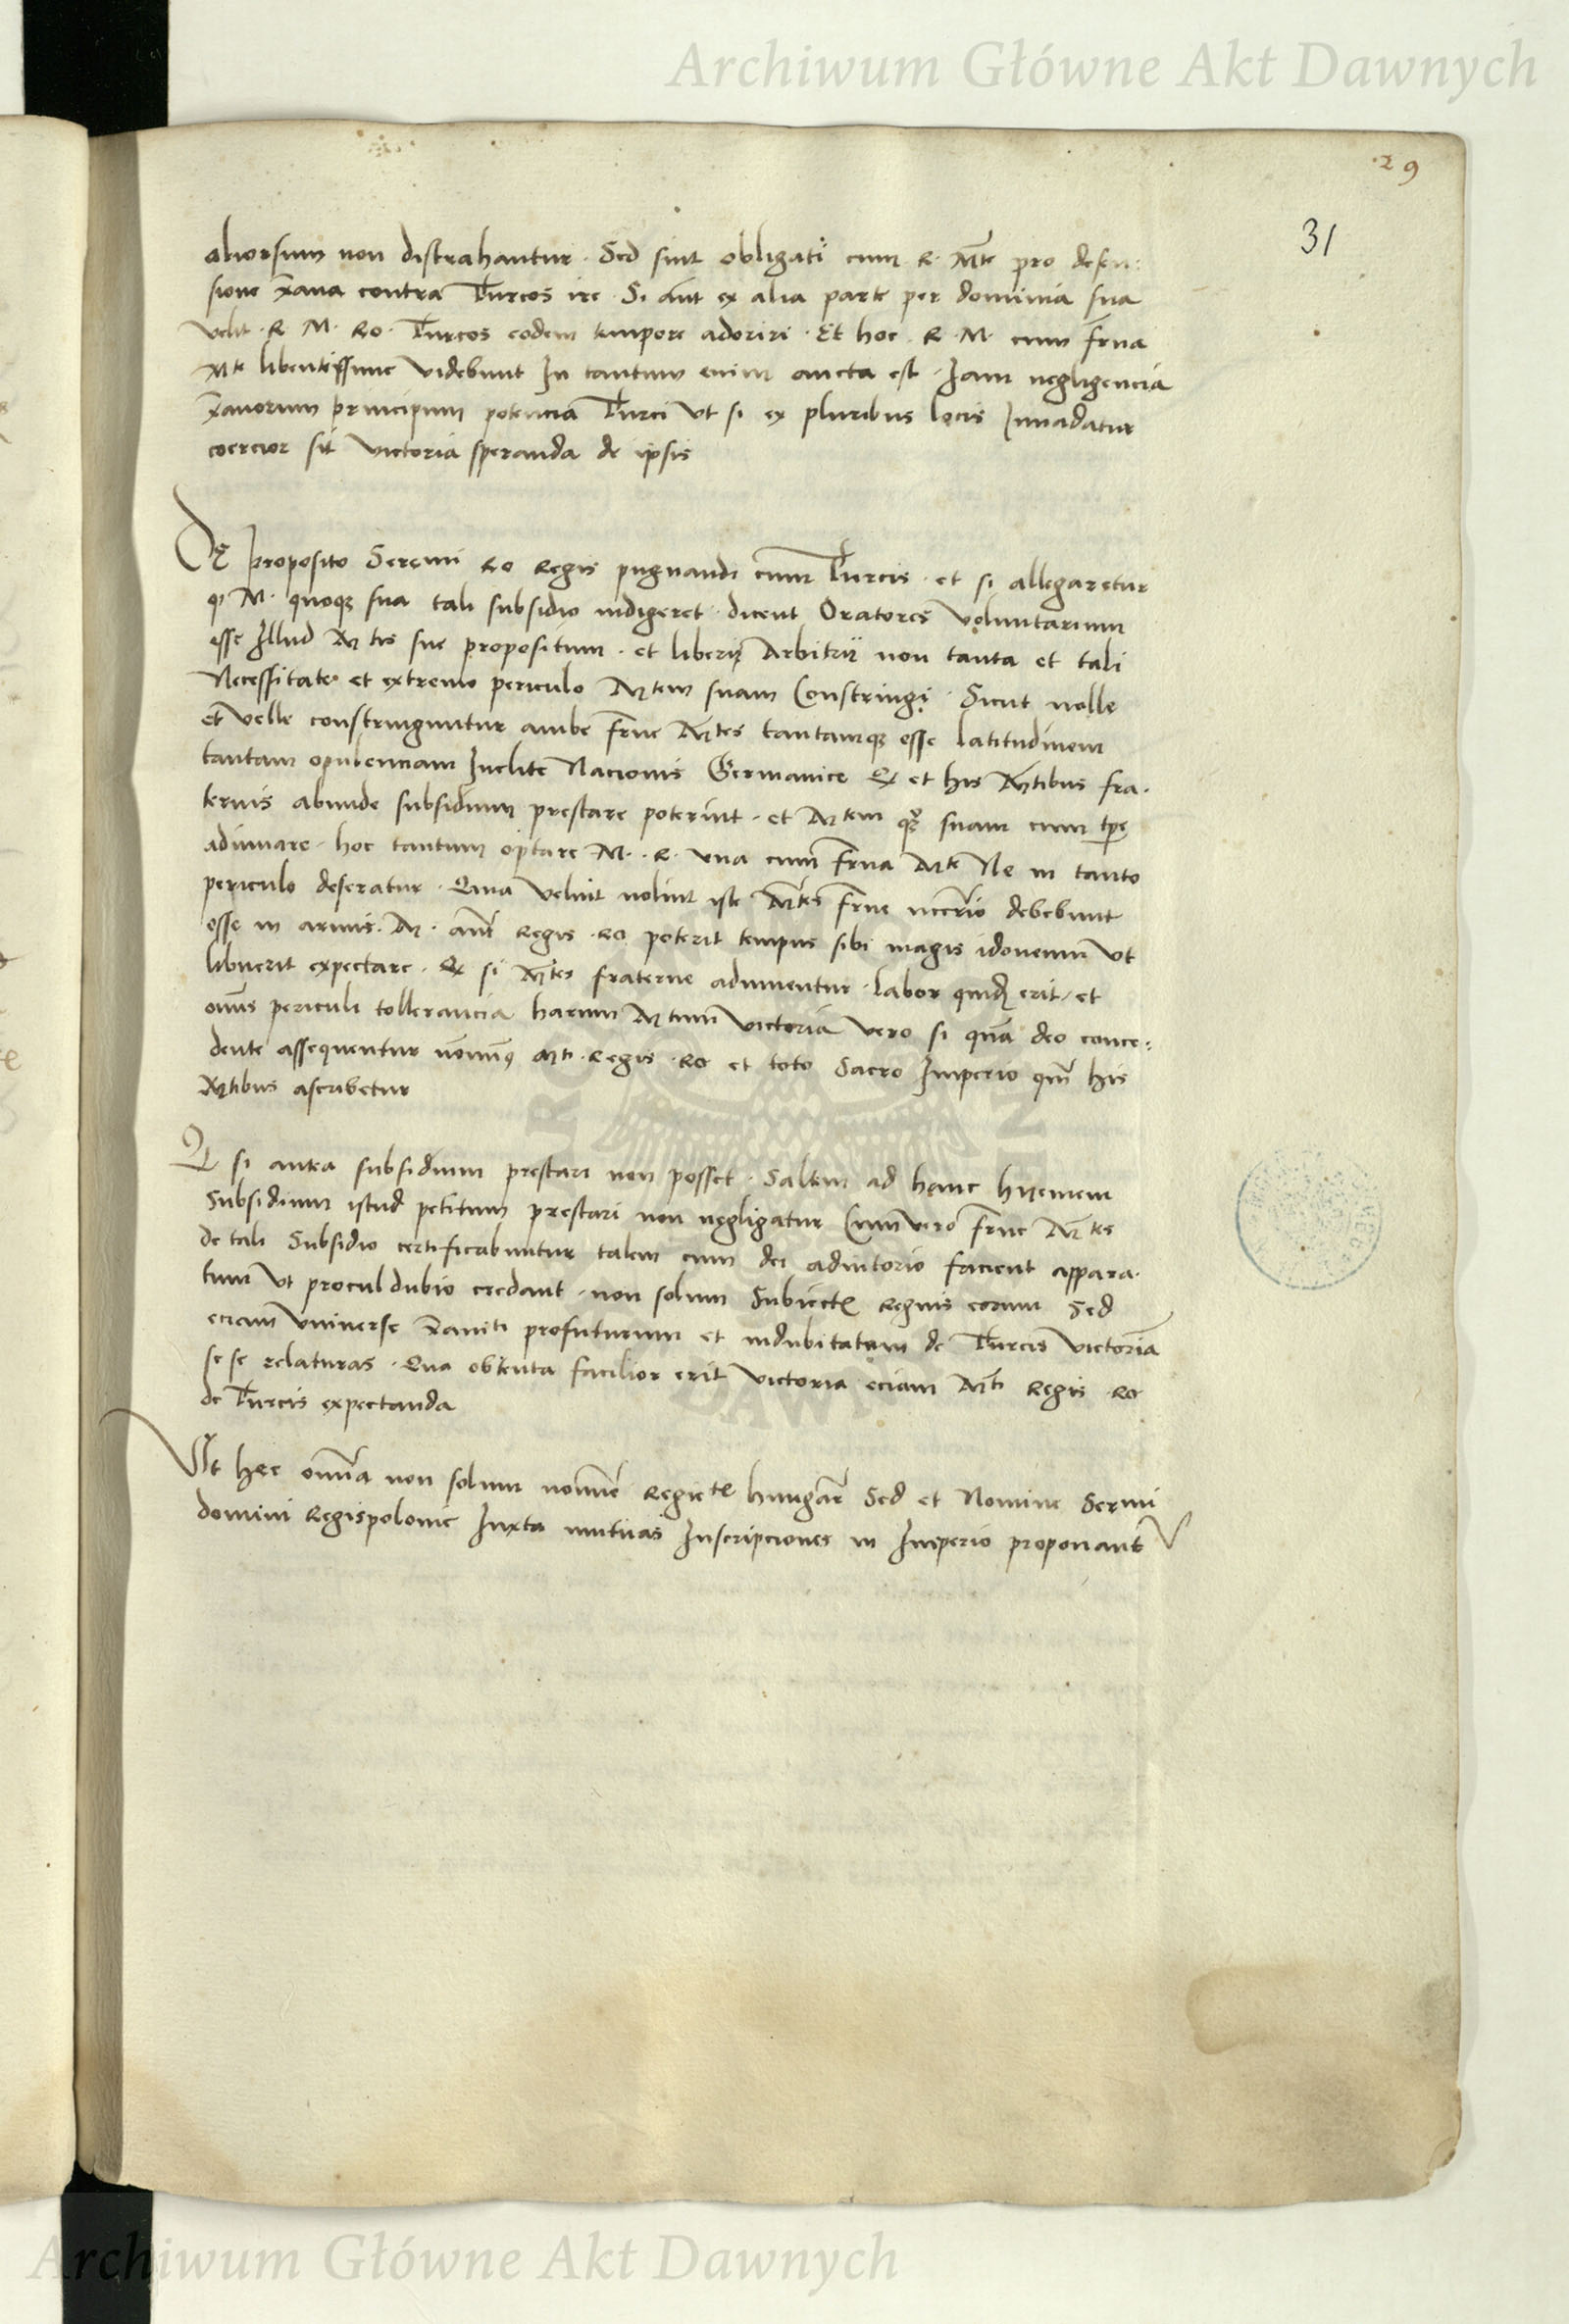 Archiwum Główne Akt Dawnych
29
31
aliorsum non distrahantur. Sed sint obligati cum R. Mte pro defen:
sione xana contra Turcos ire. Si aut ex alia parte per dominia sua
velit. R M. Ro. Turcos eodem tempore adoriri. Et hoc R. M. cum frna
Mte libentissime videbunt In tantum enim aucta est. Iam negligencia
xanorum principum potencia Turci Vt si ex pluribus locis Inuadatur
coercior sit victoria speranda de ipsis
DE proposito Serenmi Ro Regis pugnandi cum Turcis. et si allegaretur
q M. quoque sua tali subsidio indigeret. dicent Oratores voluntarium
esse Illud Mtis sue propositum. et liberi Arbitrii non tanta et tali
Necessitate et extremo periculo Mtem suam Constringi. Sicut nolle
et velle constringuntur ambe frne Mtes tantamque esse latitudinem
tantam opulenciam Inclite Nacionis Germanice Q et his Mtibus fra.
ternis abunde subsidium prestare poterint. et Mtem suam cum tpe
adiuuare. hoc tantum optare M. R. vna cum frna Mte Ne in tanto
periculo deseratur. Quia velint nolint iste Mtes frne nccrio debebunt
esse in armis. M. aut Regis. Ro poterit tempus sibi magis idoneum vt
libuerit expectare. Q si Mtes fraterne adiuuentur. labor quid erit, et
onus periculi tollerancia harum Mtum victoria vero si qua deo conce:
dente assequentur Mti. Regis. Ro et toto Sacro Imperio qm his
Mtibus ascribetur
Q si antea subsidium prestari non posset. Saltem ad hanc hyemem
Subsidium istud petitum prestari non negligatur Cum vero frne Mtes
de tali Subsidio certificabuntur talem cum dei adiutorio facient appara.
tum vt procul dubio credant. non solum Subiectis Regnis eorum Sed
eciam Vniuerse xaniti profuturum et indubitatam de Turcis victoriam
se se relaturas. Qua obtenta facilior erit victoria eciam Mti Regis Ro
de Turcis expectanda
Vt hec omnia non solum nomine Regie Hungar Sed et Nomine Sermi
domini Regis polonie Iuxta mutuas Inscripciones in Imperio proponant
Archiwum Główne Akt Dawnych